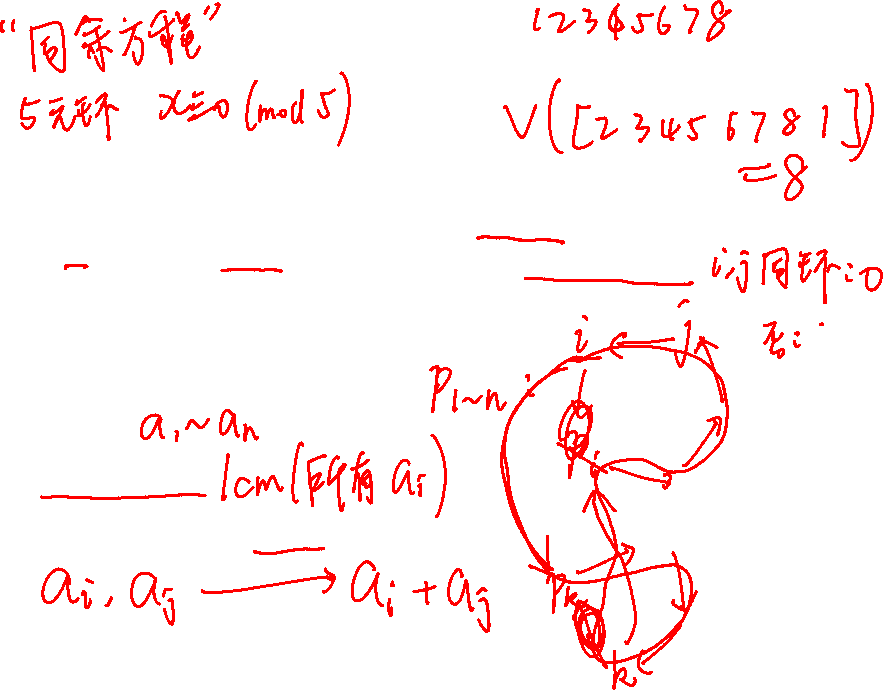 “同余方程”
5元环 x≡0 (mod 5)
12345678
V([2 3 4 5 6 7 8 1])
=8
i,j同环:0
否:
i
j
P1~n
i
Pi
a1~an
lcm(所有ai)
ai, aj → ai+aj
Pk
k